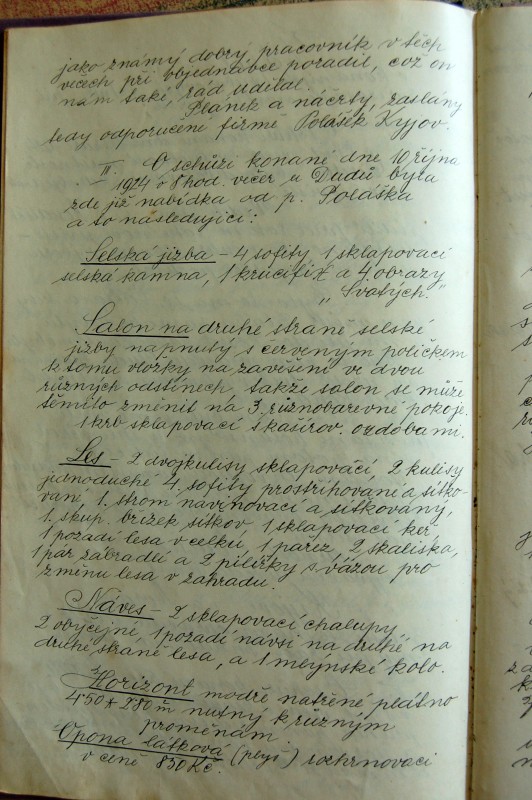 jako známý dobrý pracovník v těch
věcech při objednávce poradil, což on
nám také, rád udílal.
Plánek a náčrty, zaslány
tedy odporučené firmě Polášek Kyjov.
II. O schůzi konané dne 10 října
1924 o 8 hod. večer u Dudů byla
zde již nabídka od p. Poláška
a to následující:
Selská jizba - 4 sofity, 1 sklapovací
selská kamna, 1 krucifix a 4 obrazy
„Svatých."
Salon na druhé straně selské
jizby napnutý s červeným políčkem
k tomu vložky na zavěšení ve dvou
různých odstínech, takže salon se může
těmito změnit na 3. různobarevné pokoje.
1 krb sklapovací s kašírov. ozdobami.
Les - 2 dvojkulisy sklapovací, 2 kulisy
jednoduché 4. sofity prostřihované a síťko-
vané 1. strom navinovací a síťkovaný,
1. skup. břízek síťkov. 1 sklapovací keř
1 pozadí lesa v celku, 1 pařez, 2 skaliska,
1 pár zábradlí a 2 pilířky s vázou pro
změnu lesa v zahradu.
Náves - 2 sklapovací chalupy
2 obyčejné, 1 pozadí návsi na druhé na
druhé straně lesa, a 1 mlýnské kolo.
Horizont modře natřené plátno
450 + 280 m nutný k různým
proměnám.
Opona látková (plyš)
v ceně 850 Kč.